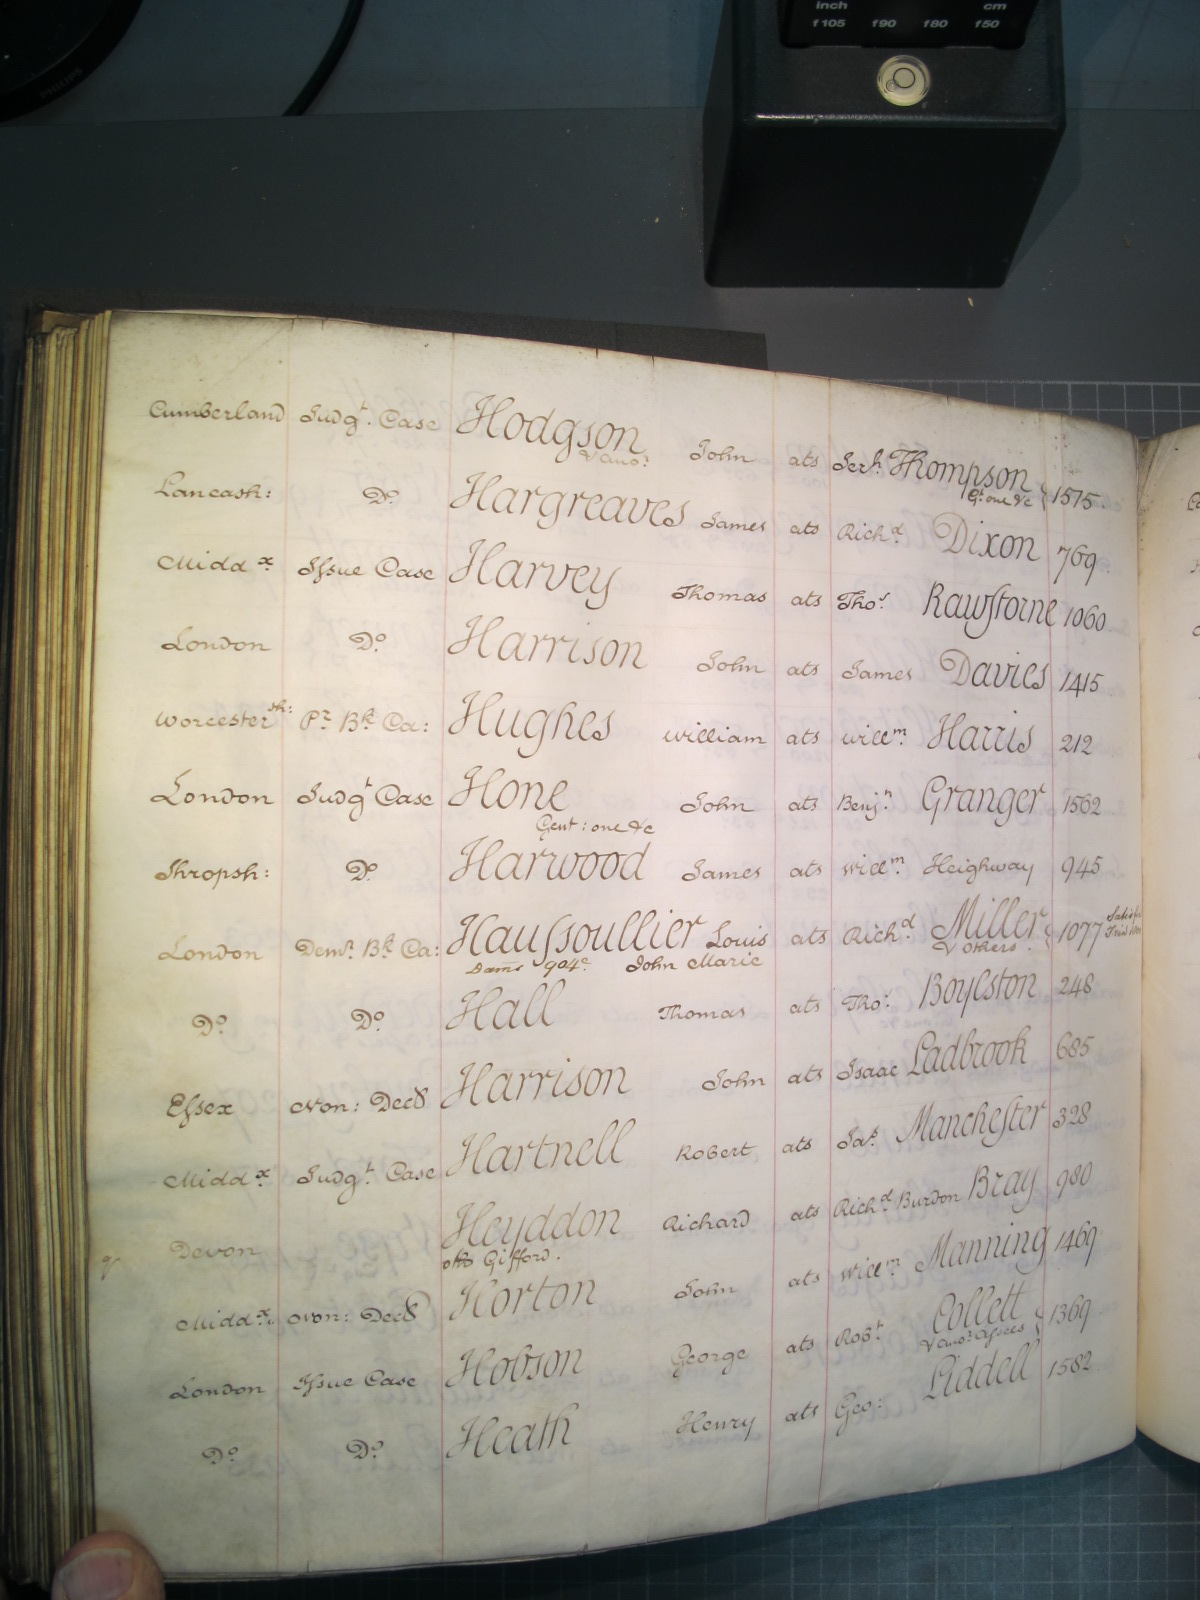 inch cm
f105 f90 f80 f50
PHILIPS
Cumberland Judgt. Case Hodgson John ats Jerh. Thompson 1575
& anor. Gt. one &c
Lancash: Do. Hargreaves James ats Richd. Dixon 769
Middx. Issue Case Harvey Thomas ats Thos. Rawstorne 1060
London Do. Harrison John ats James Davies 1415
Worcestersh: Pr. Bk. Ca: Hughes William ats Willm. Harris 212
London Judgt Case Hone John ats Benjn. Granger 1562
Gent: one &c
Shropsh: Do. Harwood James ats Willm. Heighway 945
London Demr. Bk. Ca: Haussoullier Louis ats Richd. Miller 1077
Dams 904 John Marie & others
Do. Do. Hall Thomas ats Thos. Boylston 248
Essex Non: Decd Harrison John ats Isaac Ladbrook 685
Middx. Judgt. Case Hartnell Robert ats Jas. Manchester 328
Devon Heyddon Richard ats Richd. Burdon Bray 980
Gifford.
Middx. Non: Decd Horton John ats Willm. Manning 1469
London Issue Case Hobson George ats Robt. Collett 1369
& anor. Assees
Do. Do. Heath Henry ats Geo: Liddell 1582